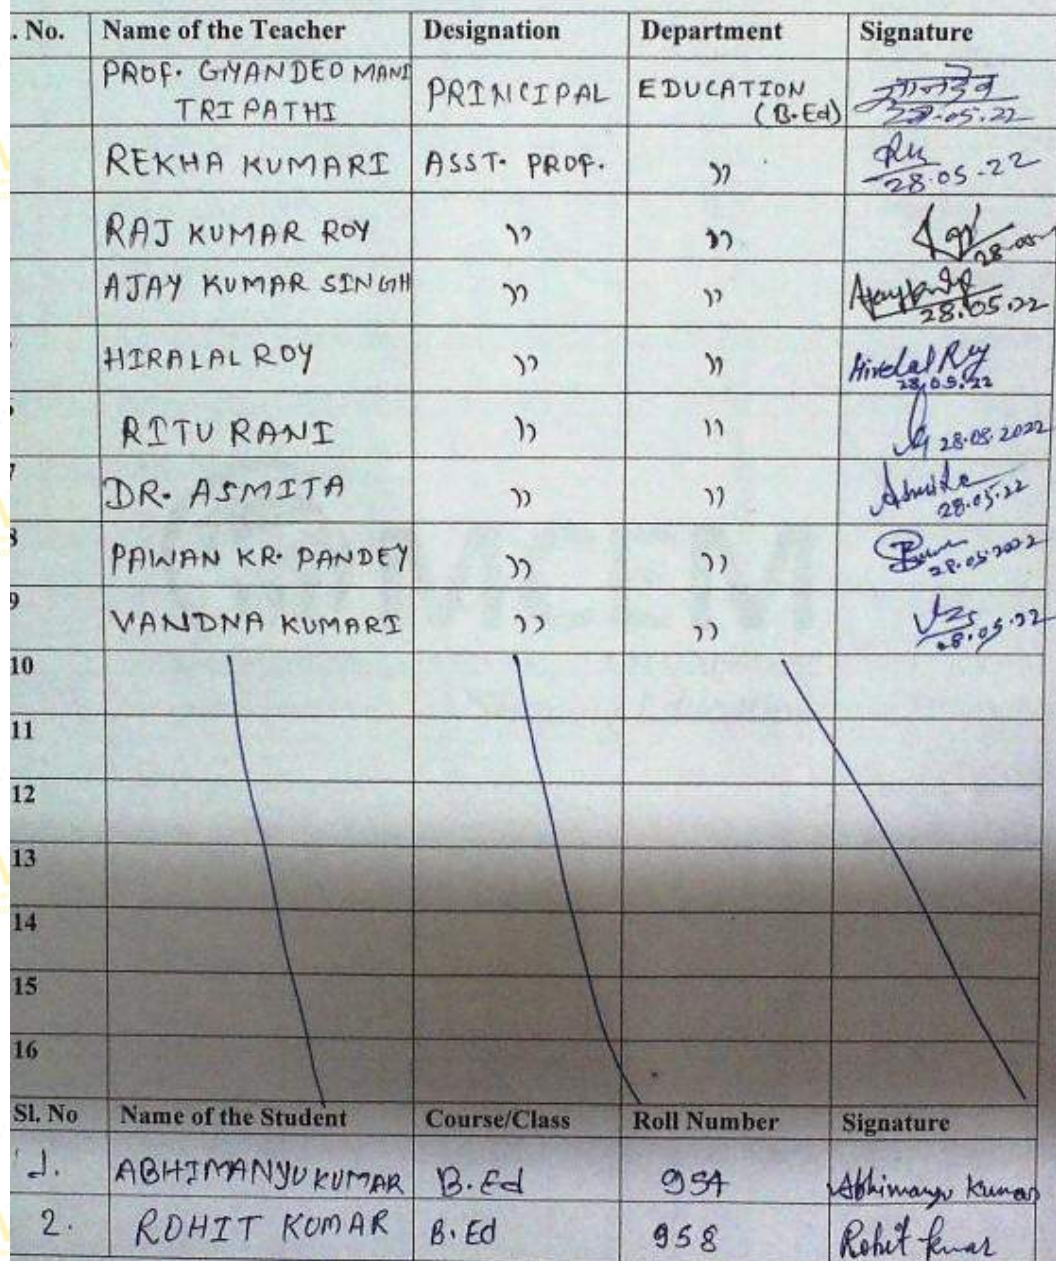 . No. Name of the Teacher Designation Department Signature
PROF. GYANDEO MANI
TRIPATHI PRINCIPAL EDUCATION
(B.Ed) ज्ञानदेव
28.05.22
REKHA KUMARI ASST. PROF. ,,
28.05.22
RAJ KUMAR ROY ,, ,,
28.05
AJAY KUMAR SINGH ,, ,,
28.05.22
HIRALAL ROY ,, ,, Hiralal Roy
28.05.22
RITU RANI ,, ,, 28.05.2022
7 DR. ASMITA ,, ,, Asmita
28.05.22
8 PAWAN KR. PANDEY ,, ,,
28.05.2022
9 VANDNA KUMARI ,, ,,
28.05.22
10
11
12
13
14
15
16
Sl. No Name of the Student Course/Class Roll Number Signature
1. ABHIMANYU KUMAR B.Ed 954 Abhimanyu Kumar
2. ROHIT KUMAR B.Ed 958 Rohit Kumar